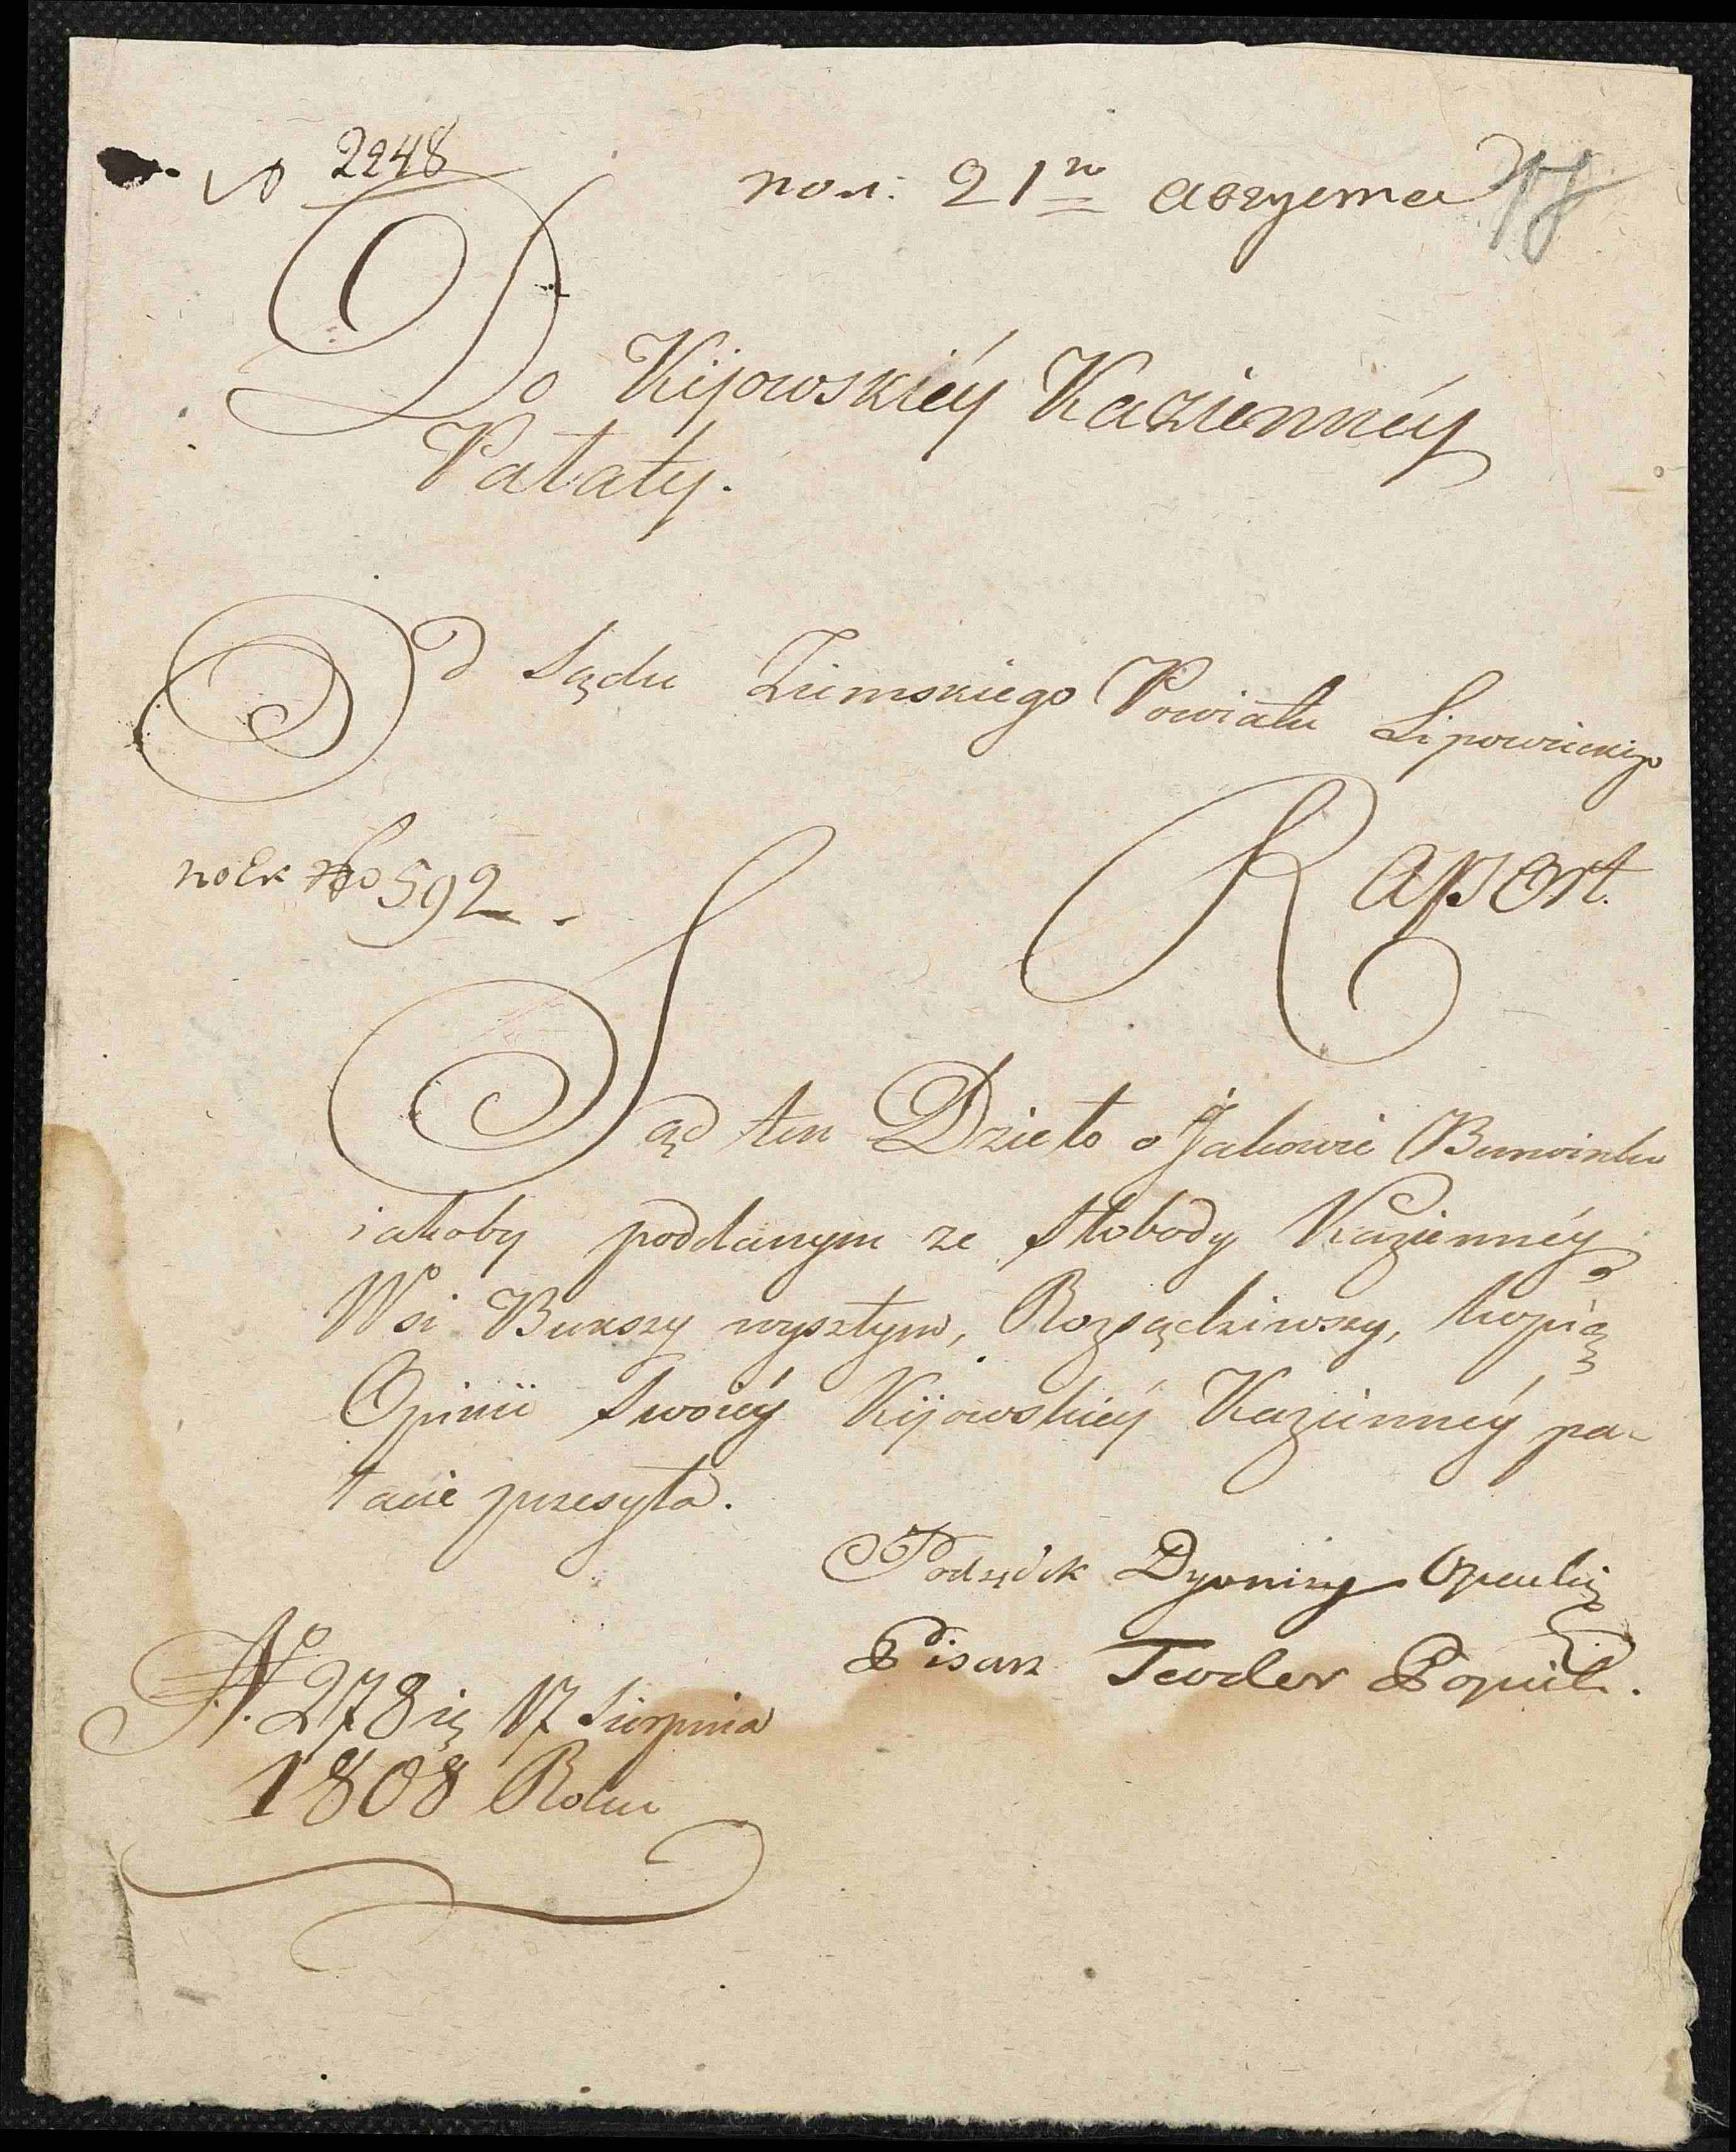 № 2248
пол: 21го августа
Do Kijowskiéy Kaziennéy
Pałaty.
Od Sądu Ziemskiego Powiatu Lipowieckiego
№ 592
Raport.
Sąd ten Dzieło o Jakowie
iakoby poddanym ze Słobody Kaziennéy
Wsi wyszłym, Rozsądziwszy, kopią
Opinii Swoiéy Kijowskiéy Kaziennéy pa-
łacie przesyła.
Podsędek Dyonizy
Pisarz Teodor
N. 278 17 Sierpnia
1808 Roku